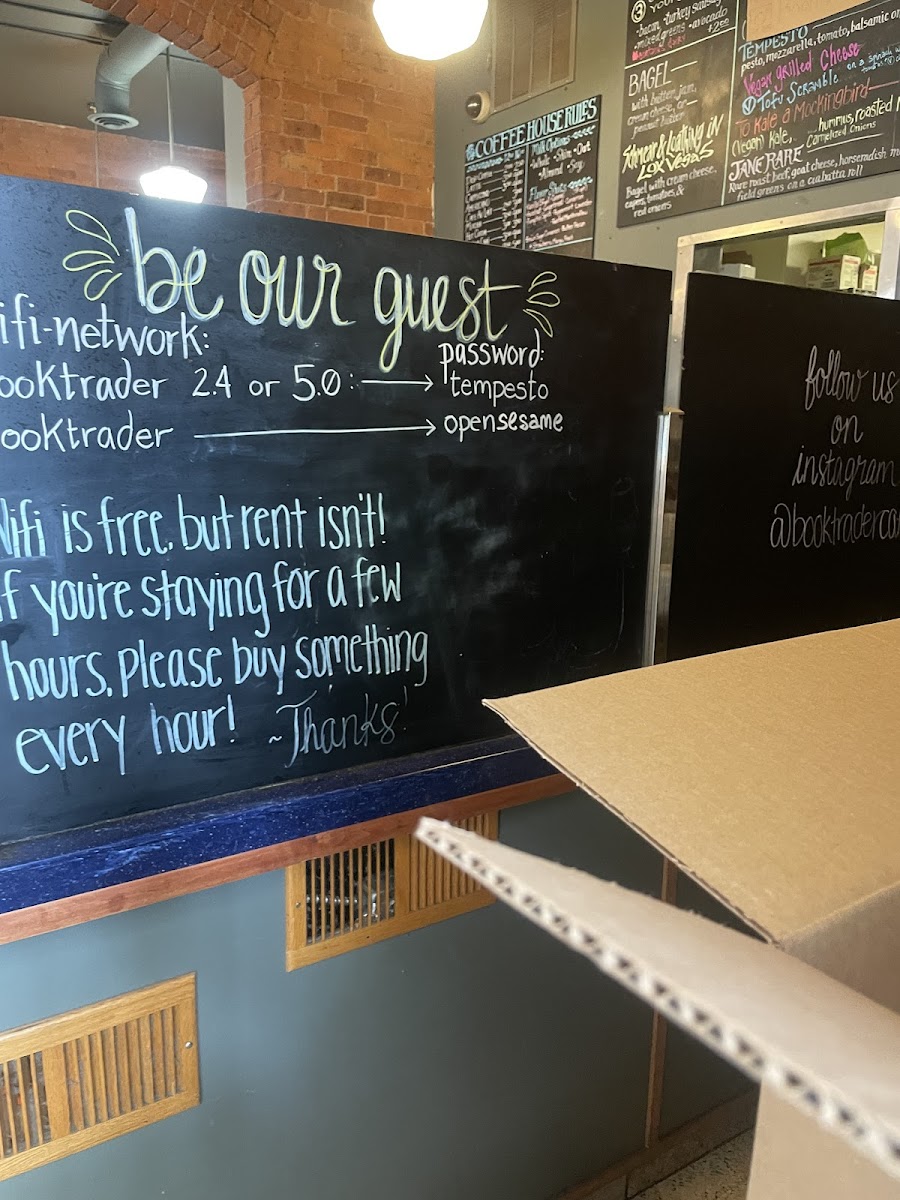 be our guest
ifi-network:
password:
ooktrader 2.4 or 5.0: tempesto
ooktrader opensesame
Wifi is free, but rent isn't!
if you're staying for a few
hours, please buy something
every hour! ~Thanks!
follow us
on
instagram
@booktraderca
COFFEE HOUSE RULES
Milk Options
•Whole •Skim •Oat
•Almond •Soy
Flavor Shots
③
•bacon •turkey sausage
•mixed greens •avocado
BAGEL
with butter, jam,
cream cheese, or
peanut butter
Schmear & Loathing in
Lox Vegas
Bagel with cream cheese,
capers, tomatoes, &
red onions
TEMPESTO
pesto, mozzarella, tomato, balsamic on
Vegan grilled Cheese
Tofu Scramble on a spinach
To Kale a Mockingbird
(Vegan) Kale, hummus, roasted
Carmelized Onions
JANE RARE
Rare roast beef, goat cheese, horseradish
field greens on a ciabatta roll